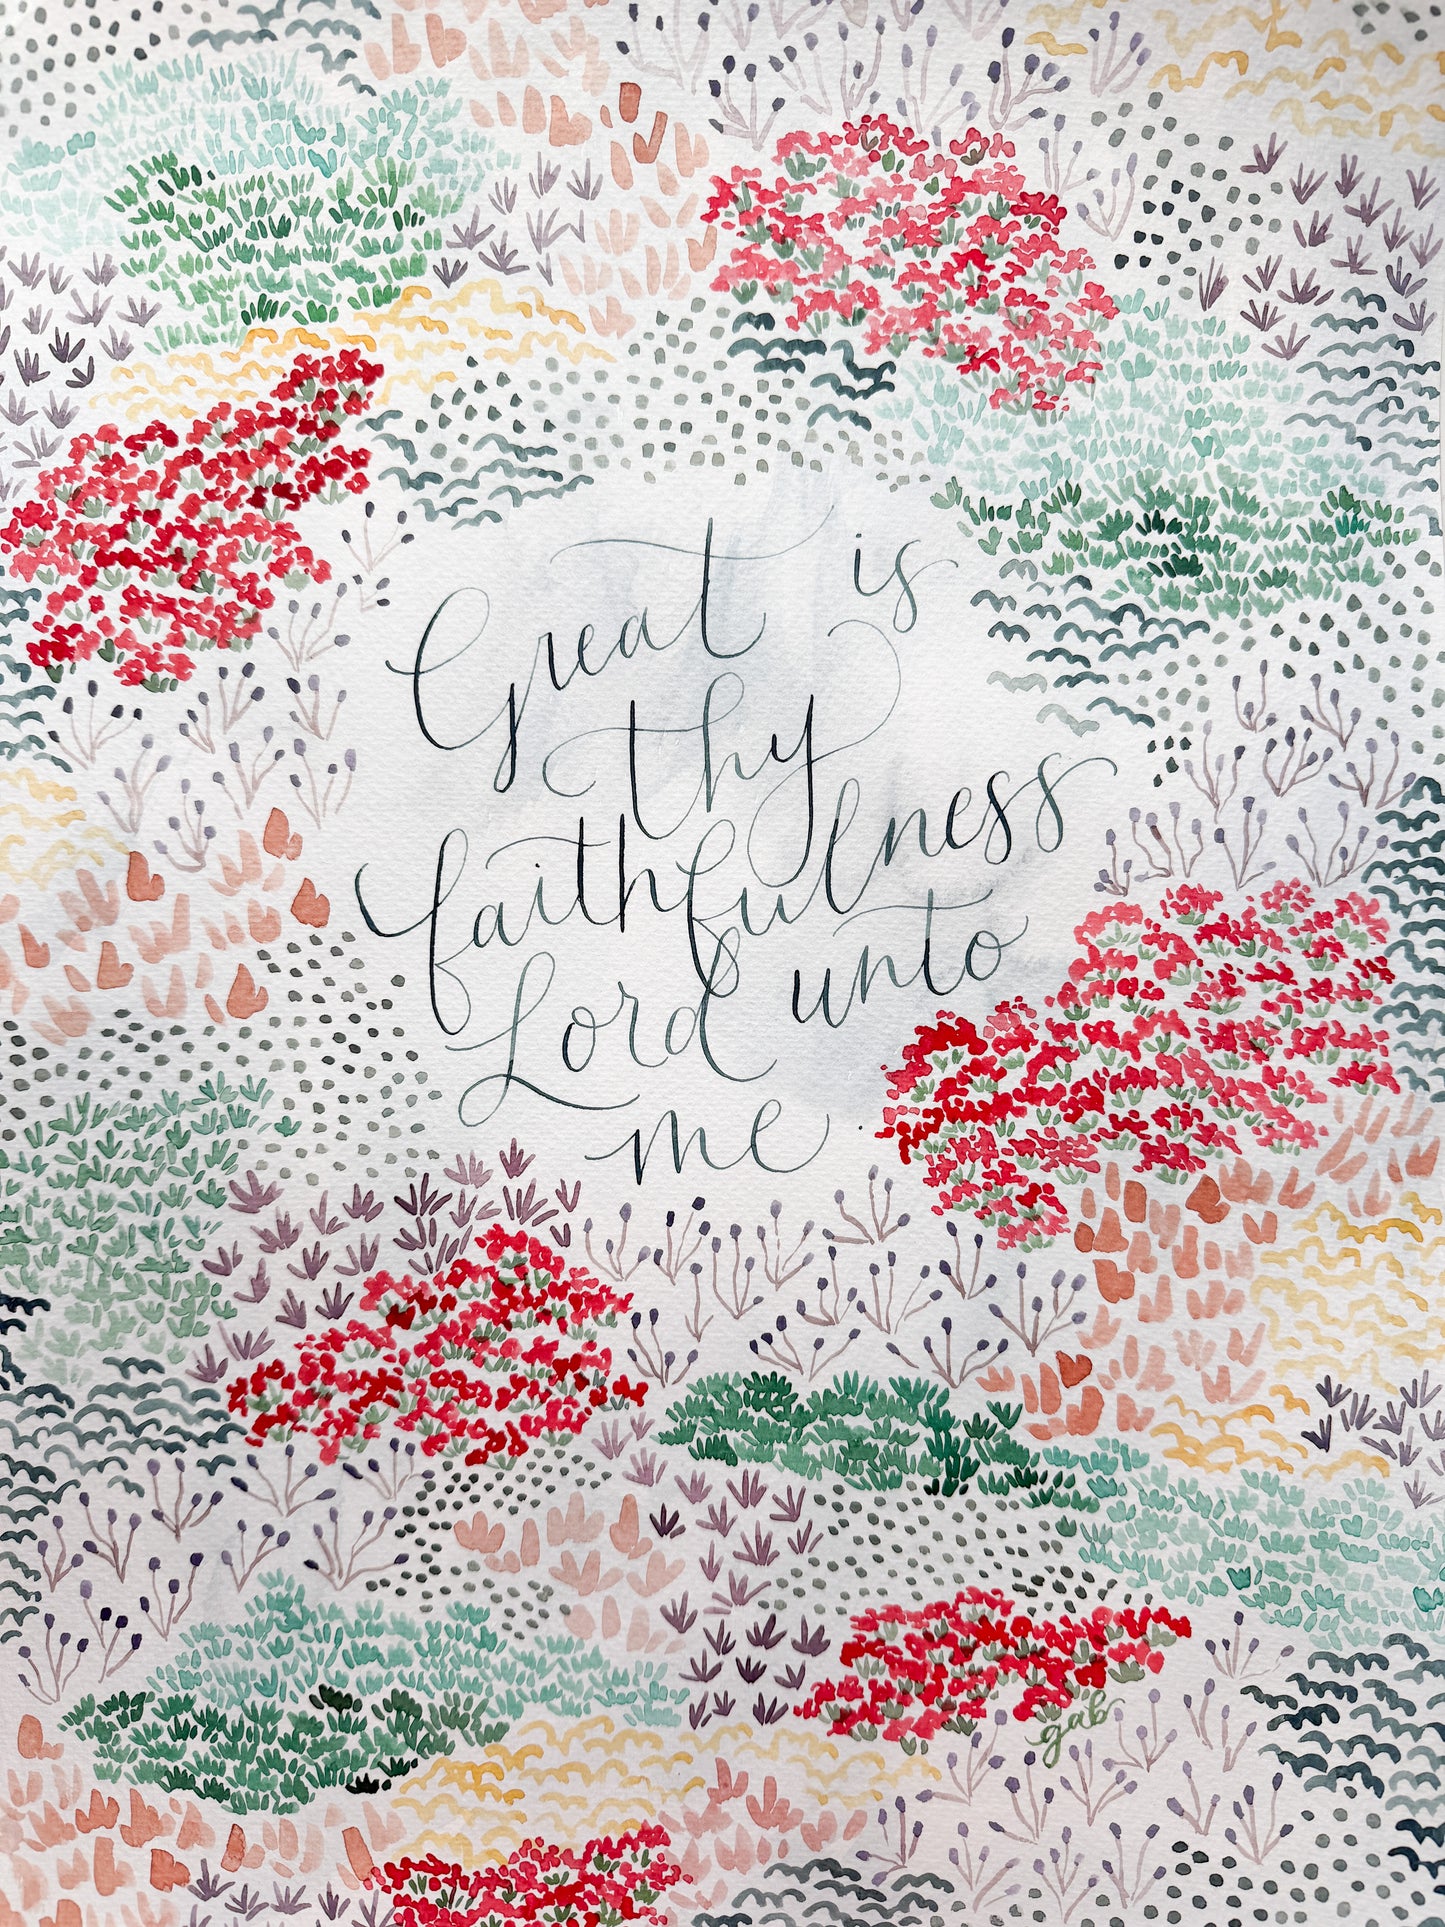 Great is
thy
faithfulness
Lord unto
me
gab